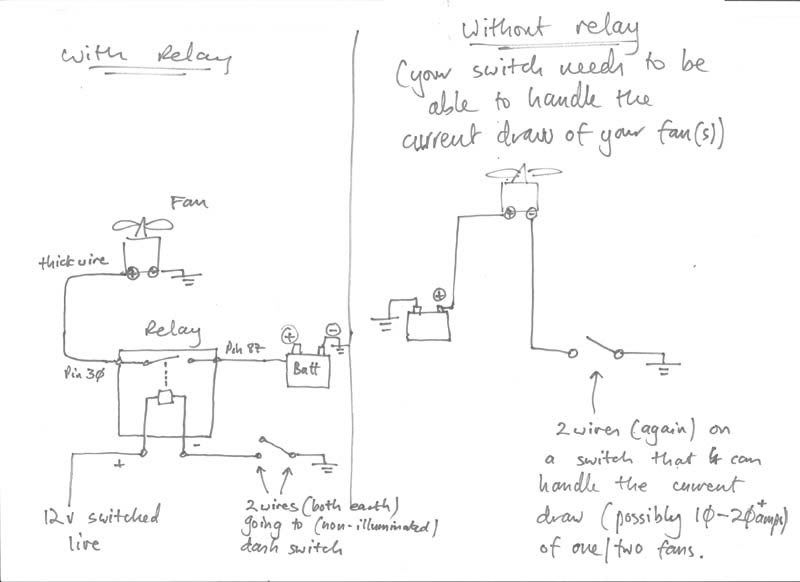 With Relay
Without relay
(your switch needs to be
able to handle the
current draw of your fan(s))
Fan
thick wire
+ -
Relay
Pin 30
Pin 87
+ -
Batt
+ -
12v switched
live
2 wires (both earth)
going to (non-illuminated)
dash switch
+ -
+
2 wires (again) on
a switch that can
handle the current
draw (possibly 10-20+ amps)
of one/two fans.